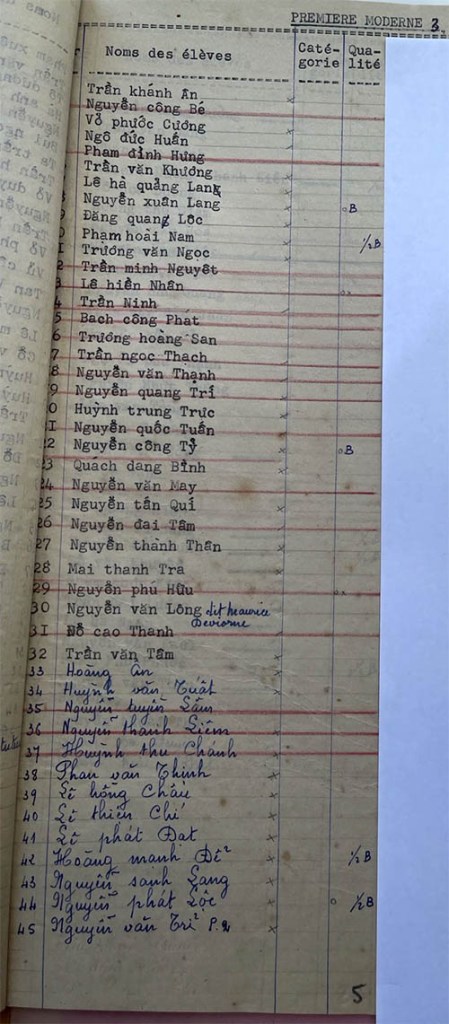 PREMIERE MODERNE 3
Noms des élèves
Caté-
gorie
Qua-
lité
Trần khánh Ân x
Nguyễn công Bé
Võ phước Cương x
Ngô đức Huấn x
Pham đình Hưng
Trần văn Khương x
Lê hà quảng Lang x
Nguyễn xuân Lang x oB
Đăng quang Lôc x
Phạm hoài Nam x ½B
Trương văn Ngoc x
2 Trần minh Nguyêt
3 Lê hiền Nhân ox
4 Trần Ninh
5 Bach công Phát
6 Trương hoàng San
7 Trần ngoc Thach
8 Nguyễn văn Thạnh x
9 Nguyễn quang Trí
0 Huỳnh trung Trưc x
I Nguyễn quốc Tuấn
22 Nguyễn công Tỷ x oB
23 Quách dang Bình x
24 Nguyễn văn May
25 Nguyễn tấn Quí x
26 Nguyễn đai Tâm
27 Nguyễn thành Thân x
28 Mai thanh Tra x
29 Nguyễn phú Hữu ox
30 Nguyễn văn Lông dit Maurice
Deviorne
3I Đỗ cao Thanh x
32 Trần văn Tâm x
33 Hoàng Ân x
34 Huỳnh văn Tuất x
35 Nguyễn tuyển Lâm
36 Nguyễn thanh Liêm x
37 Huỳnh thu Chánh
38 Phan văn Thịnh x
39 Lê hồng Châu x
40 Lê thiện Chí x
41 Lê phát Đat x
42 Hoàng manh Đễ x ½B
43 Nguyễn sanh Lang x
44 Nguyễn phát Lộc x o ½B
45 Nguyễn văn Trí P.2 x
5